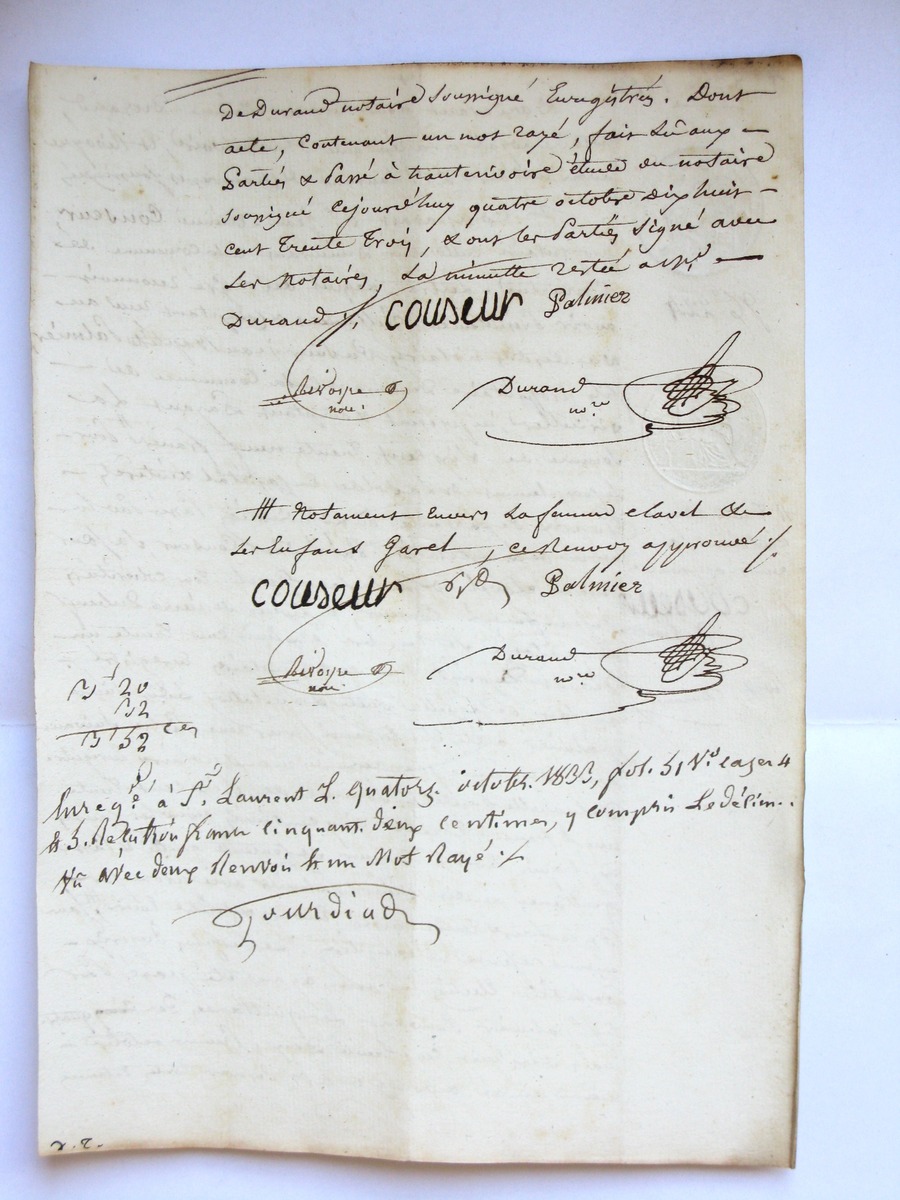 De Durand notaire soussigné Enregistrés. Dont
acte, Contenant un mot rayé, fait Lû aux
Partiés & Passé à hauterivoire étude du notaire
soussigné cejourd'huy quatre octobre Dix huit
cent Trente Trois, & ont les Partiés signé avec
Les Notaires, La minutte restée a
Durand couseur Palmier
nore. Durand nore
Notament Envers La femme clavel &
Les Enfans Garel, ce Renvoy approuvé ./.
couseur Palmier
nore. Durand nore
3f 20
32
3f 52 ces
Enregé à St. Laurent L. quatorze octobre 1833, fol. 51 Vo. cases 4
& 5. Reçu trois francs cinquante deux centimes, y compris Le décime.
Vû avec deux Renvois & un Mot Rayé ./.
Gourdiad